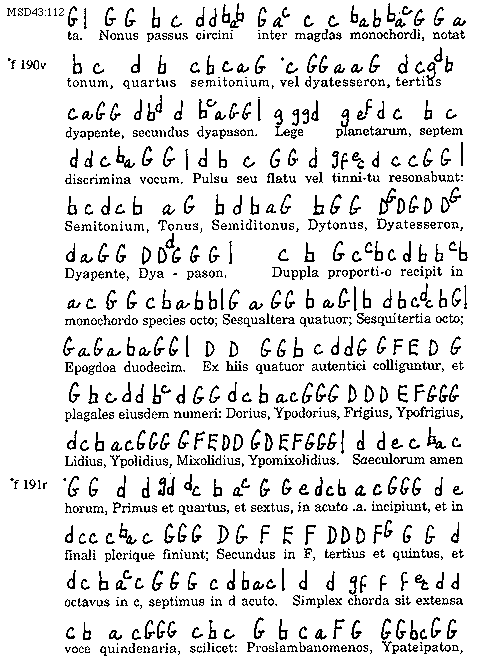 MSD43:112 G| G G b c ddbb G a c c c b a b b a c G G a
ta. Nonus passus circini inter magdas monochordi, notat
*f 190v b c d b c b c a G c G G a a G d c d b
tonum, quartus semitonium, vel dyatesseron, tertius
c a G G d b d d b c a G G | g g g d g e f d c b c
dyapente, secundus dyapason. Lege planetarum, septem
d d c b a G G | d b c G G d g f e c d c c G G |
discrimina vocum. Pulsu seu flatu vel tinni-tu resonabunt:
b c d c b a G b d b a G b G G D G D G D D G
Semitonium, Tonus, Semiditonus, Dytonus, Dyatesseron,
d a G G D D d G G G | c b G c c b c d b b c b
Dyapente, Dya - pason. Duppla proporti-o recipit in
a c G G c b a b b | G a G G b a G | b d b c d c b G |
monochordo species octo; Sesqualtera quatuor; Sesquitertia octo;
G a G a b a G G | D D G G b c d d G G F E D G
Epogdoa duodecim. Ex hiis quatuor autentici colliguntur, et
G b c d d b c d G G d c b a c G G G D D D E F G G G
plagales eiusdem numeri: Dorius, Ypodorius, Frigius, Ypofrigius,
d c b a c G G G G F E D D G D E F G G G | d d e c b a c
Lidius, Ypolidius, Mixolidius, Ypomixolidius. Saeculorum amen
*f 191r G G d d g d d c b a c G G e d c b a c G G G d e
horum, Primus et quartus, et sextus, in acuto .a. incipiunt, et in
d c c c b a c G G G D G F E F D D D F G G G d
finali plerique finiunt; Secundus in F, tertius et quintus, et
d c b a c c G G G c d b a c | d d g f f f e c d d
octavus in c, septimus in d acuto. Simplex chorda sit extensa
c b a c G G G c b c G b c a F G G G b c G G
voce quindenaria, scilicet: Proslambanomenos, Ypateipaton,